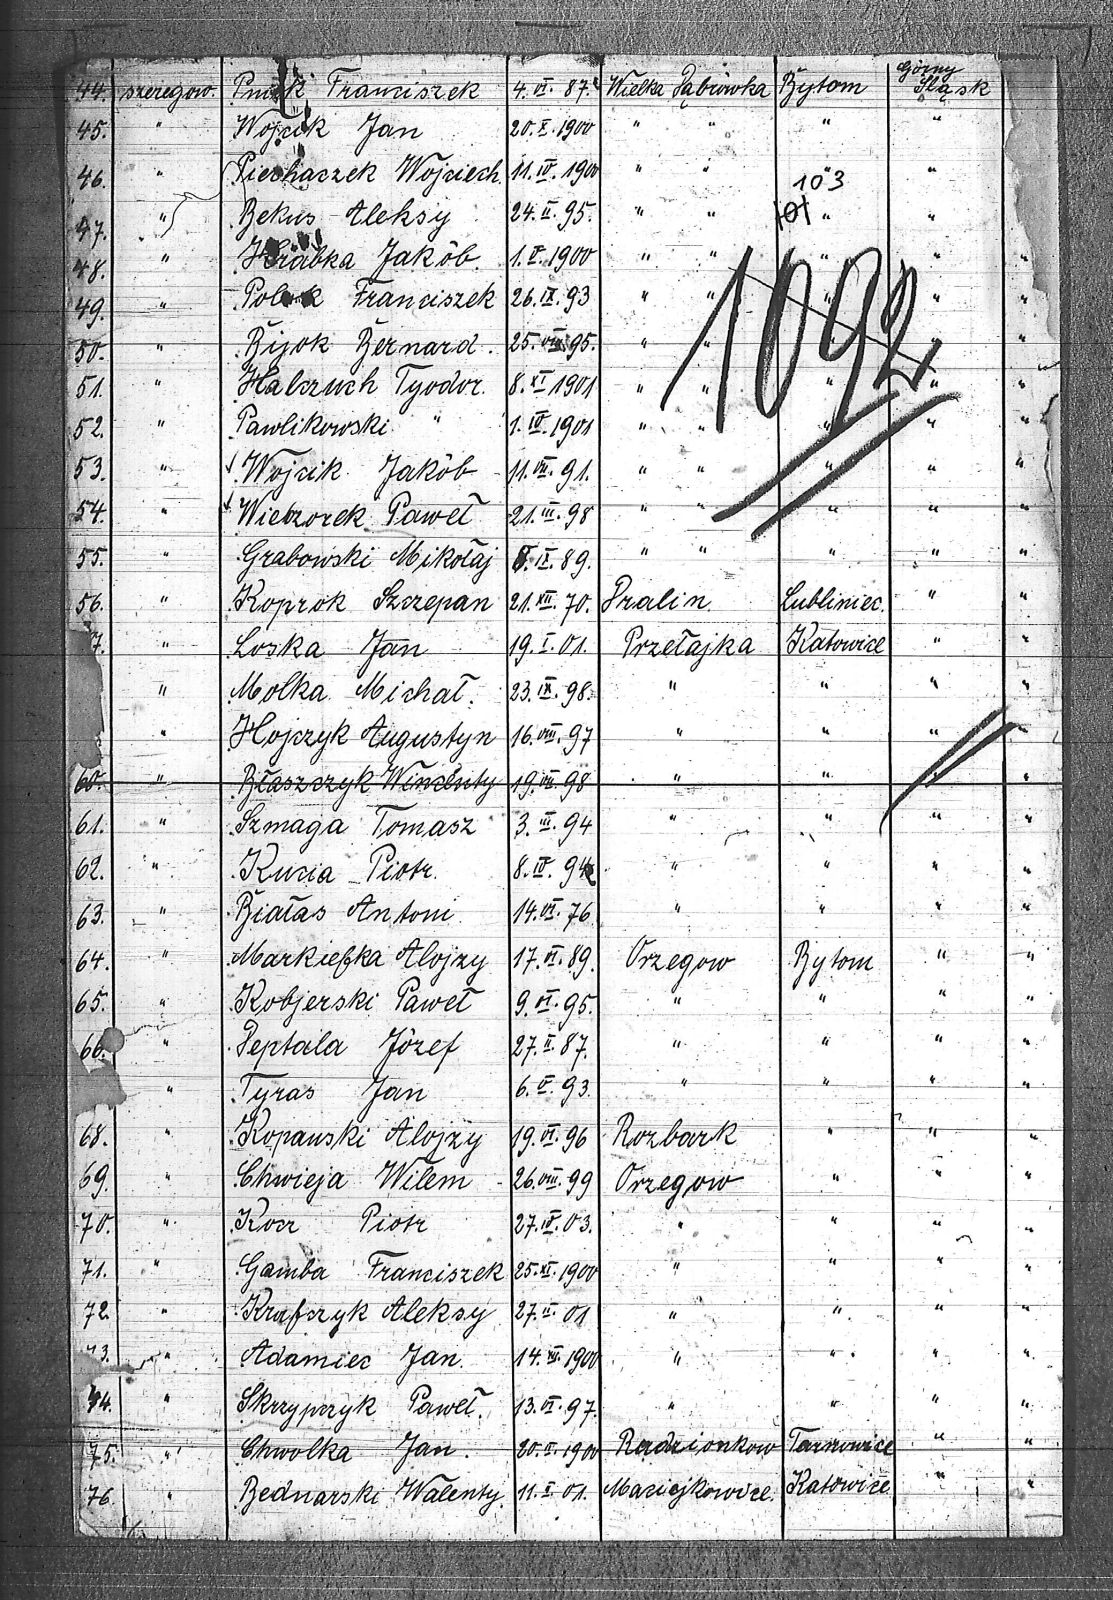 Górny
44. szeregow. Franciszek 4.VI.87 Wielka Dąbrówka Bytom Śląsk
45. " Wojcik Jan 20.X.1900 " " " "
46. " Piechaczek Wojciech 11.IV.1900 " " " "
103
47. " Bekus Aleksy 24.II.95. " " 101 " "
48. " Hrabka Jakób. 1.V.1900 " " " "
49. " Polok Franciszek 26.IX.93 " " " " "
1092
50. " Bijok Bernard. 25.VIII.95. " " " " "
51. " Halczuch Tyodor. 8.XI.1901 " " " " "
52. " Pawlikowski " 1.IV.1901 " " " " "
53. " Wojcik Jakób 11.VII.91. " " " " "
54. " Wieczorek Paweł 21.III.98 " " " " "
55. " Grabowski Mikołaj IX.89. " " " " "
56. " Koprok Szczepan 21.XII.70. Pralin Lubliniec. " "
7. " Loska Jan 19.I.01. Przełajka Katowice " "
" Molka Michał. 23.IX.98. " " " "
" Hojczyk Augustyn 16.VIII.97 " " " "
60. " Błaszczyk Wincenty 19.VII.98 " " " "
61. " Szmaga Tomasz 3.III.94 " " " "
62. " Kucia Piotr. 8.IV.94 " " " "
63. " Białas Antoni 14.VI.76 " " " "
64. " Markiefka Alojzy 17.VI.89. Orzegow Bytom " "
65. " Kobjerski Paweł 9.VI.95. " " " "
66. " Peptala Józef 27.II.87. " " " "
" Tyras Jan 6.V.93. " " " "
68. " Kopanski Alojzy 19.VI.96 Rozbark " " "
69. " Chwieja Wilem 26.VIII.99 Orzegow " " "
70. " Kocz Piotr 27.IV.03. " " " "
71. " Gamba Franciszek 25.XI.1900 " " " "
72. " Krafczyk Aleksy 27.II.01 " " " "
73. " Adamiec Jan. 14.XII.1900 " " " "
74. " Skrzypczyk Paweł. 13.VI.97. " " " "
75. " Chwolka Jan. 20.II.1900 Radzionkow Tarnowice " "
76. " Bednarski Walenty. 11.I.01. Maciejkowice. Katowice " "